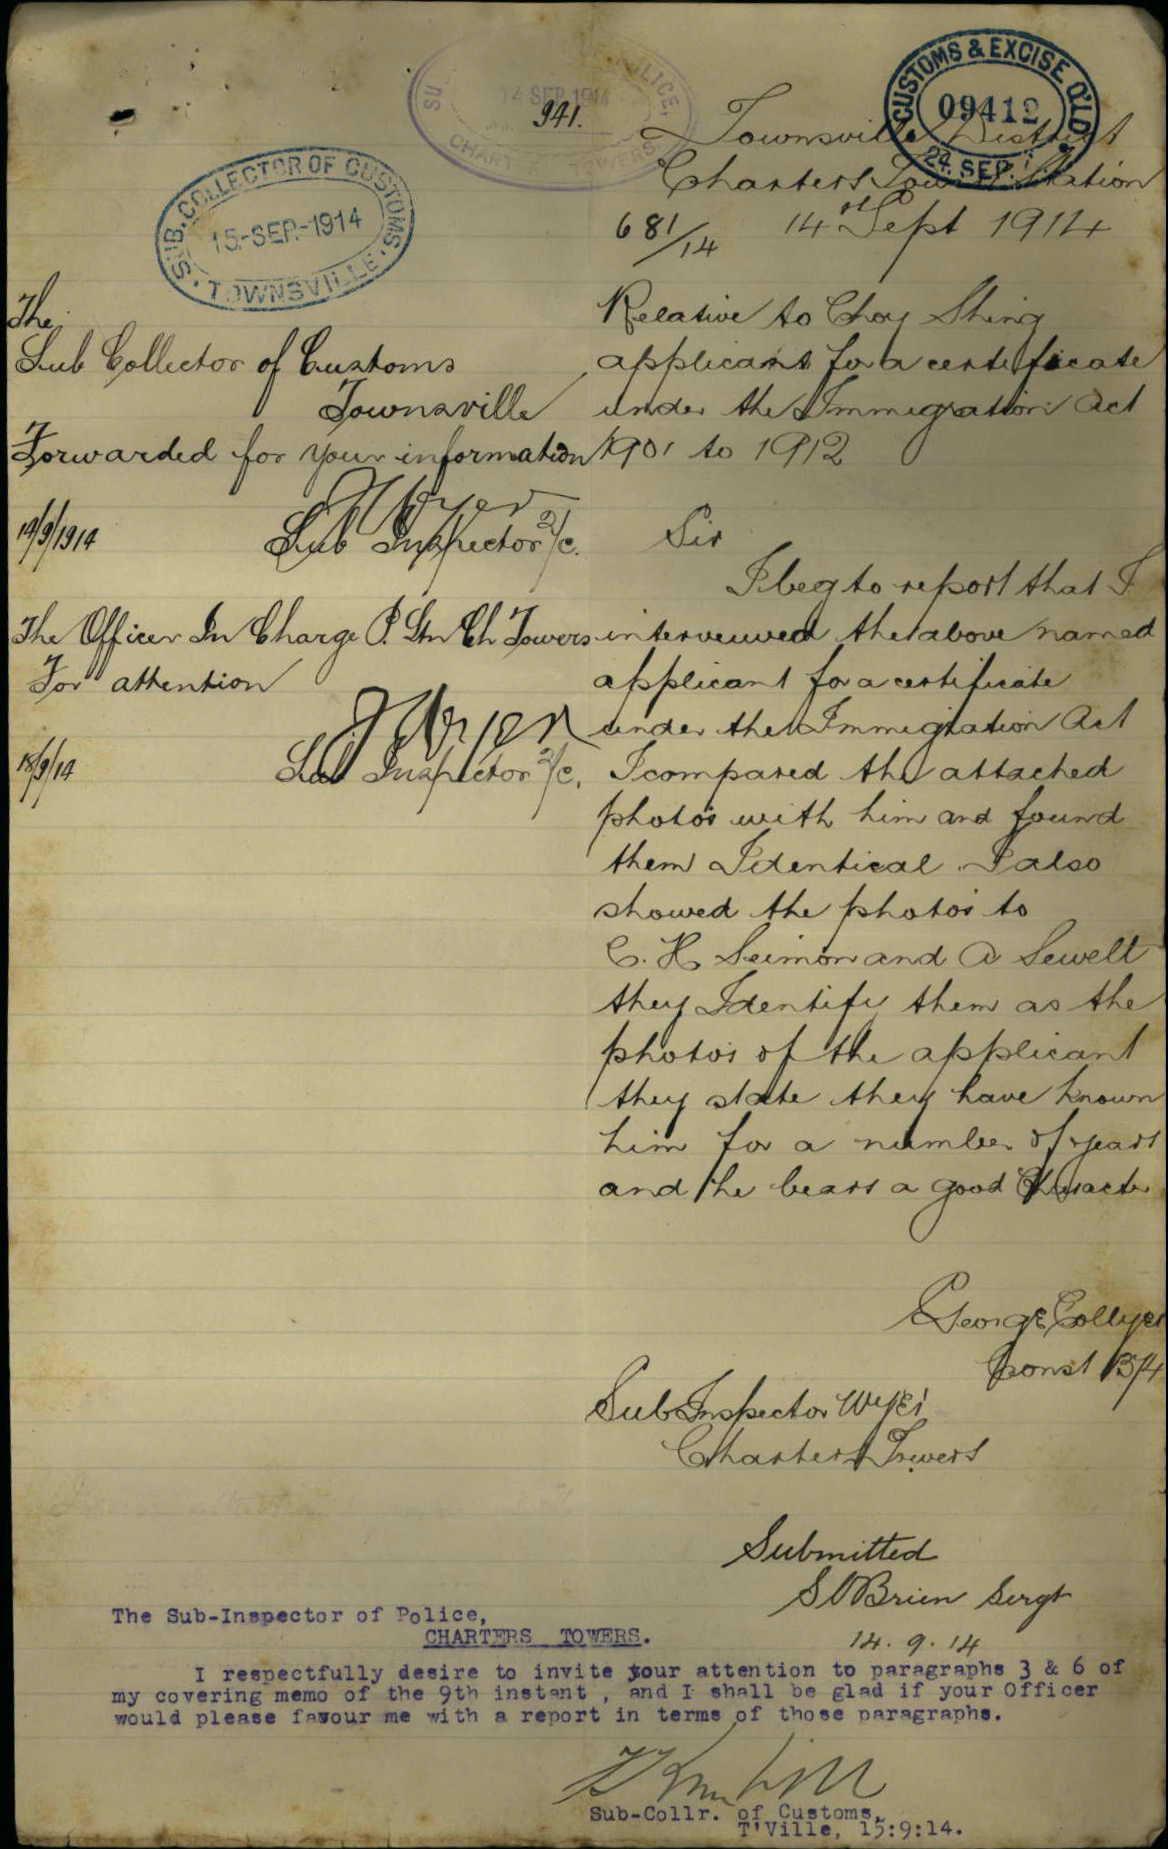 CUSTOMS & EXCISE Q'LD
09412
24. SEP.
LICE,
14 SEP 1914
CHART TOWERS
941.
SUB. COLLECTOR OF CUSTOMS.
15-SEP.-1914
TOWNSVILLE
Townsville District
Charters Towers Station
681/14 14th Sept 1914
Relative to Choy Shing
applicant for a certificate
under the Immigration Act
1901 to 1912
Sir
I beg to report that I
interveiwed the above named
applicant for a certificate
under the Immigration Act
I compared the attached
photos with him and found
them Identical. I also
showed the photos to
C. H. Seimon and A Sewell
they Identify them as the
photos of the applicant
they state they have known
him for a number of years
and he bears a good Character
George Collyer
Const 
Sub Inspector Wyer
Charters Towers
Submitted
S OBrien Sergt
14. 9. 14
The
Sub Collector of Customs
Townsville
Forwarded for your information
Wyer
14/9/1914 Sub Inspector 2/c.
The Officer In Charge P. Stn Ch Towers
For attention
Wyer
18/9/14 Sub Inspector 2/c.
The Sub-Inspector of Police,
CHARTERS TOWERS.
I respectfully desire to invite your attention to paragraphs 3 & 6 of
my covering memo of the 9th instant , and I shall be glad if your Officer
would please favour me with a report in terms of those paragraphs.
Sub-Collr. of Customs,
T'Ville, 15:9:14.